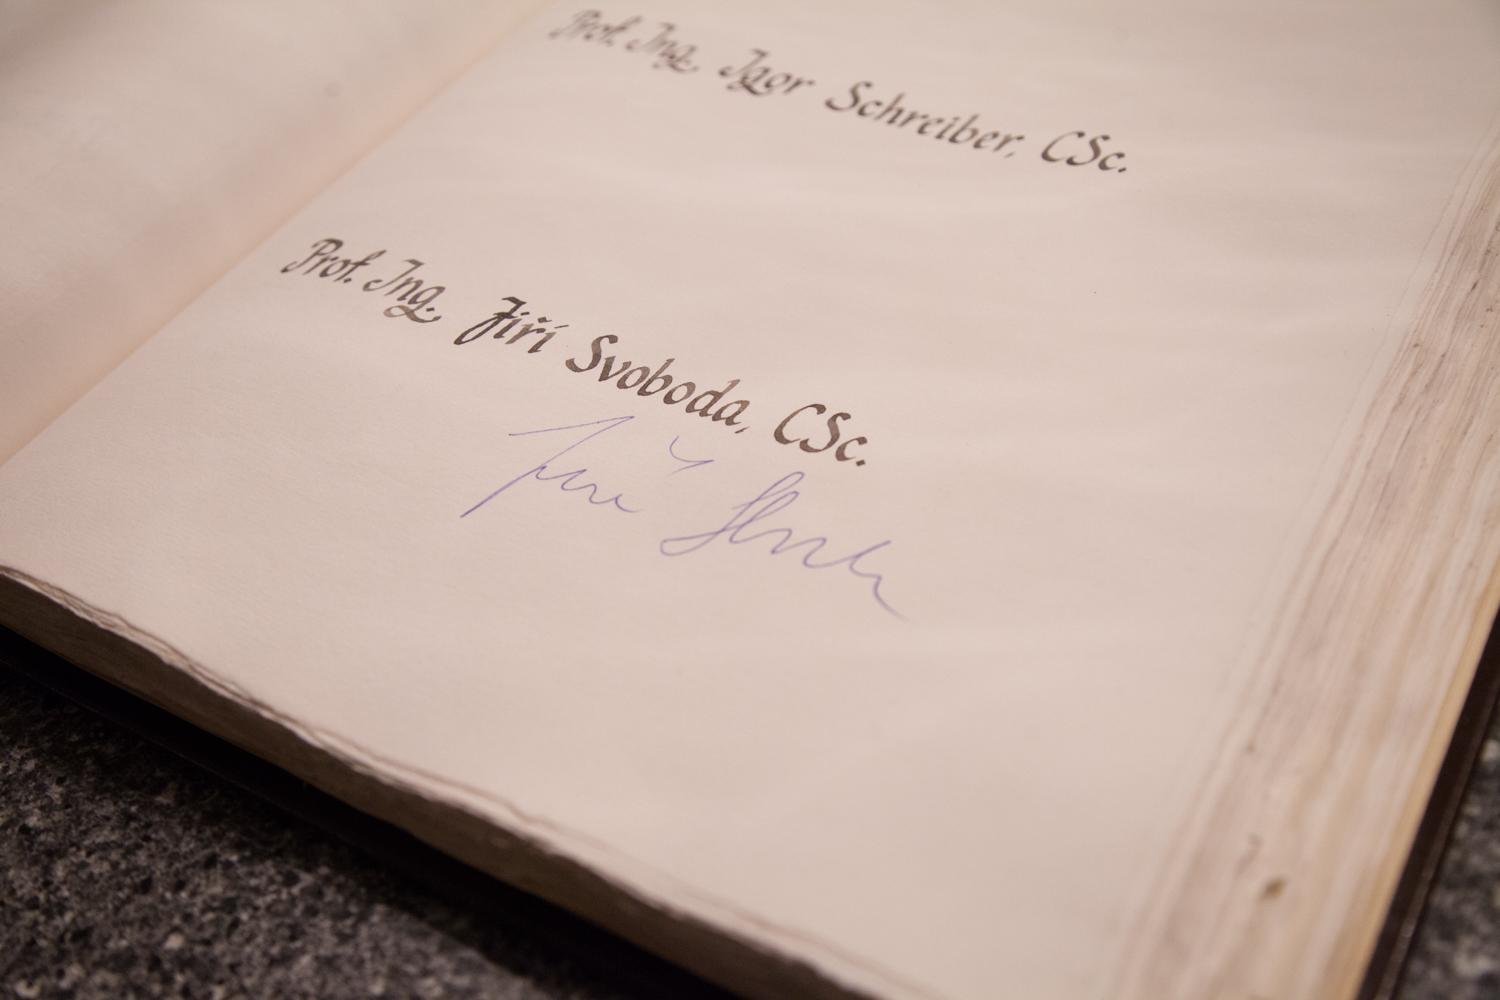 Prof. Ing. Igor Schreiber, CSc.
Prof. Ing. Jiří Svoboda, CSc.
Jiří